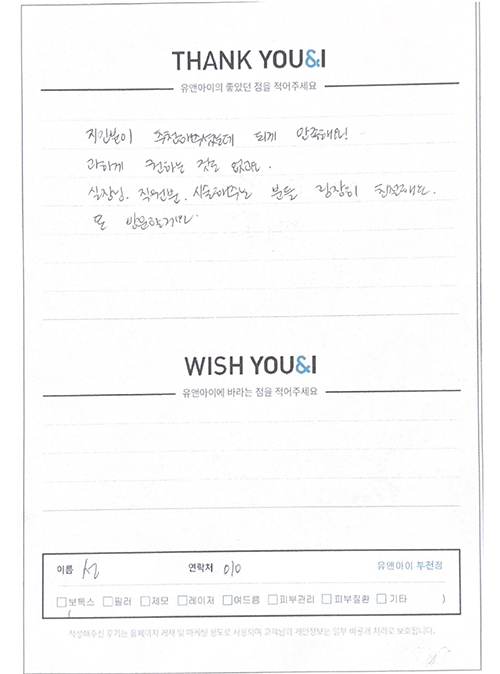 THANK YOU&I
유앤아이의 좋았던 점을 적어주세요
지인분이 추천해주셨는데 되게 만족해요!
과하게 권하는 것도 없고요.
실장님, 직원분, 시술해주는 분들 굉장히 친절해요.
또 방문할거예요.
WISH YOU&I
유앤아이에 바라는 점을 적어주세요
이름 연락처 010 유앤아이
보톡스 필러 제모 레이저 여드름 피부관리 피부질환 기타 )
(
적성해주신 후기는 홈페이지 게재 및 마케팅 용도로 사용되며 고객님의 개인정보는 일부 비공개 처리로 보호됩니다.